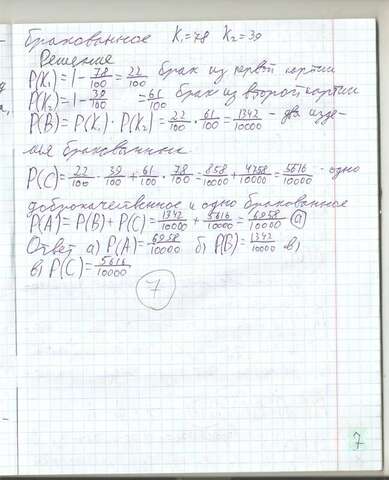 бракованное K₁=78 K₂=39
Решение
P(K₁)=1-78/100=22/100 брак из первой партии
P(K₂)=1-39/100=61/100 брак из второй партии
P(B)=P(K₁)·P(K₂)=22/100·61/100=1342/10000 - два изде-
лия бракованных
P(C)=22/100·39/100+61/100·78/100=858/10000+4758/10000=5616/10000 - одно
доброкачественное и одно бракованное
P(A)=P(B)+P(C)=1342/10000+5616/10000=6958/10000 (а)
Ответ а) P(A)=6958/10000 б) P(B)=1342/10000 в)
в) P(C)=5616/10000
7
7